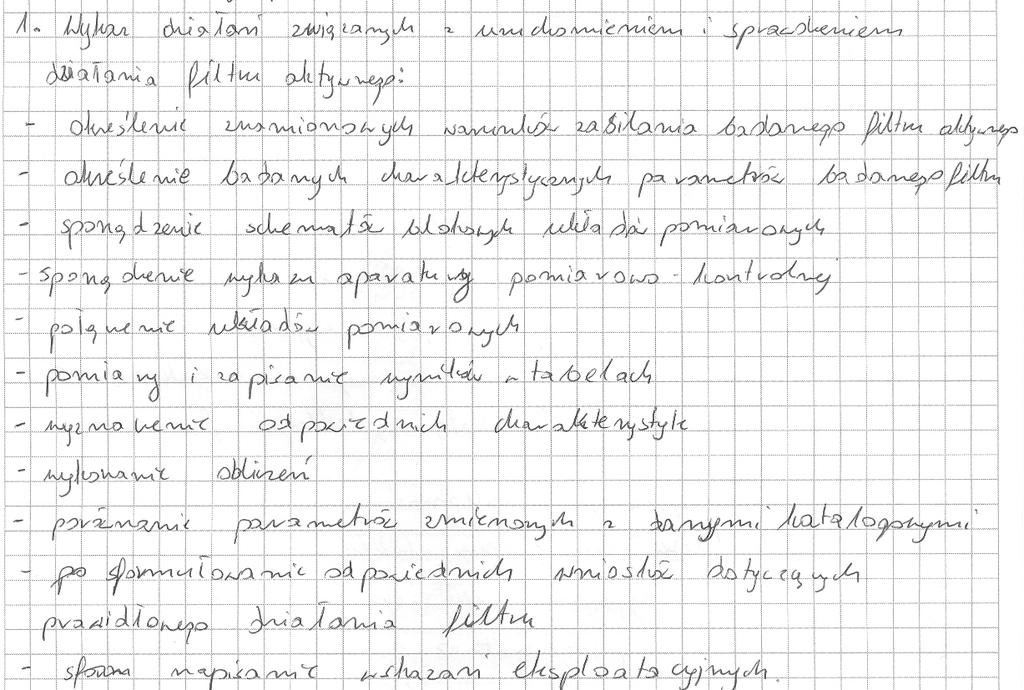 1. Wykaz działań związanych z uruchomieniem i sprawdzeniem
działania filtru aktywnego:
- określenie znamionowych warunków zasilania badanego filtru aktywnego
- określenie badanych charakterystycznych parametrów badanego filtru
- sporządzenie schematów blokowych układów pomiarowych
- sporządzenie wykazu aparatury pomiarowo-kontrolnej
- połączenie układów pomiarowych
- pomiary i zapisanie wyników w tabelach
- wyznaczenie odpowiednich charakterystyk
- wykonanie obliczeń
- porównanie parametrów zmierzonych z danymi katalogowymi
- sformułowanie odpowiednich wniosków dotyczących
prawidłowego działania filtru
- napisanie wskazań eksploatacyjnych.